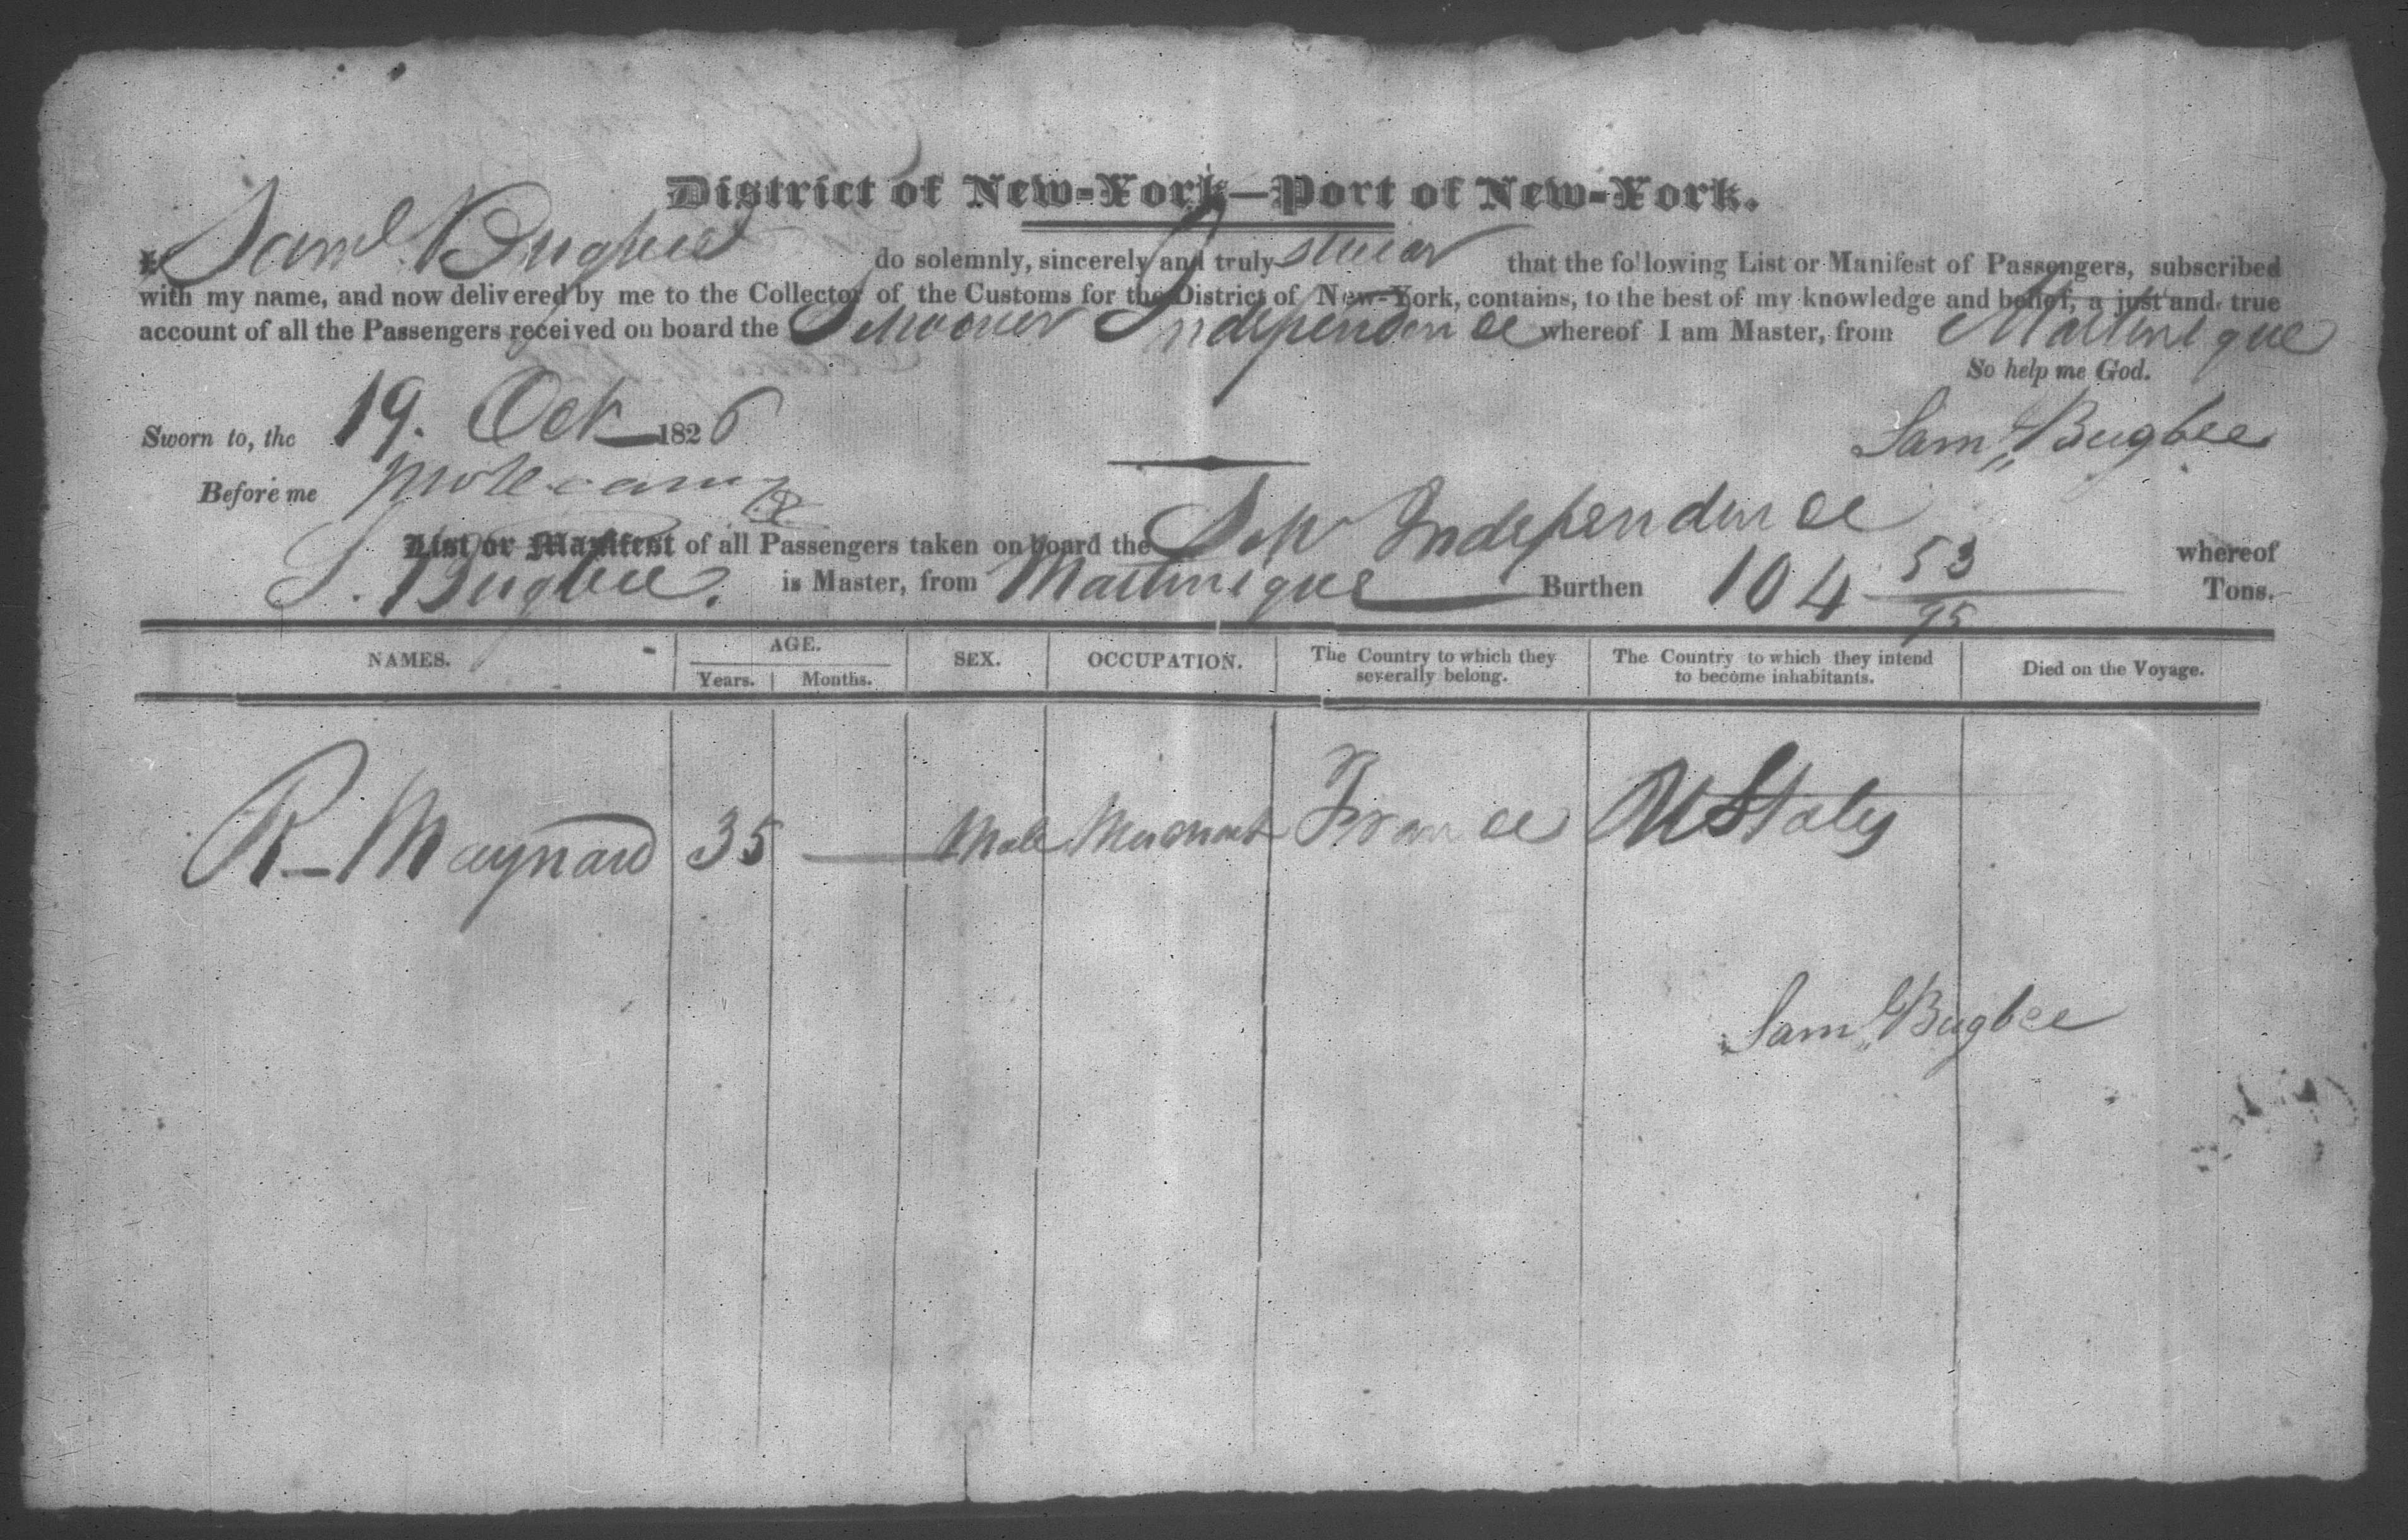 District of New-York—Port of New-York.
I Saml. Bugbee do solemnly, sincerely and truly swear that the following List or Manifest of Passengers, subscribed
with my name, and now delivered by me to the Collector of the Customs for the District of New-York, contains, to the best of my knowledge and belief, a just and true
account of all the Passengers received on board the Schooner Independence whereof I am Master, from Martinique
So help me God.
Sworn to, the 19. Oct 1826
Saml Bugbee
Before me
List or Manifest of all Passengers taken on board the Schr Independence whereof
S. Bugbee. is Master, from Martinique Burthen 104 53/95 Tons.
NAMES. AGE. SEX. OCCUPATION. The Country to which they severally belong. The Country to which they intend to become inhabitants. Died on the Voyage.
Years. Months.
R - Maynard 35 — Male Merchant France U States
Saml Bugbee